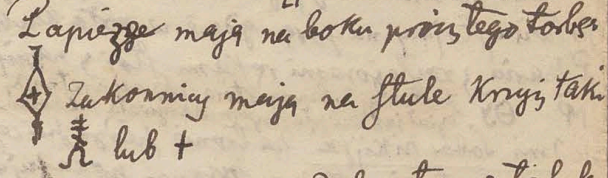 Łapiezze mają na boku prócz tego torbę
Zakonnicy mają na stule krzyż taki
lub +